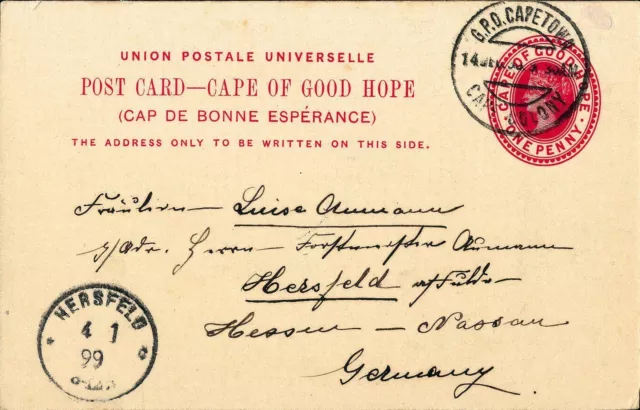 UNION POSTALE UNIVERSELLE
POST CARD—CAPE OF GOOD HOPE
(CAP DE BONNE ESPÉRANCE)
THE ADDRESS ONLY TO BE WRITTEN ON THIS SIDE.
G.P.O. CAPETOWN
14 DEC
COLONY
CAPE OF GOOD HOPE
ONE PENNY
Fräulein Luise Aumann
p/Adr. Herrn Forstmeister Aumann
Hersfeld a/Fulda
Hessen-Nassau
Germany
HERSFELD
4 1
99